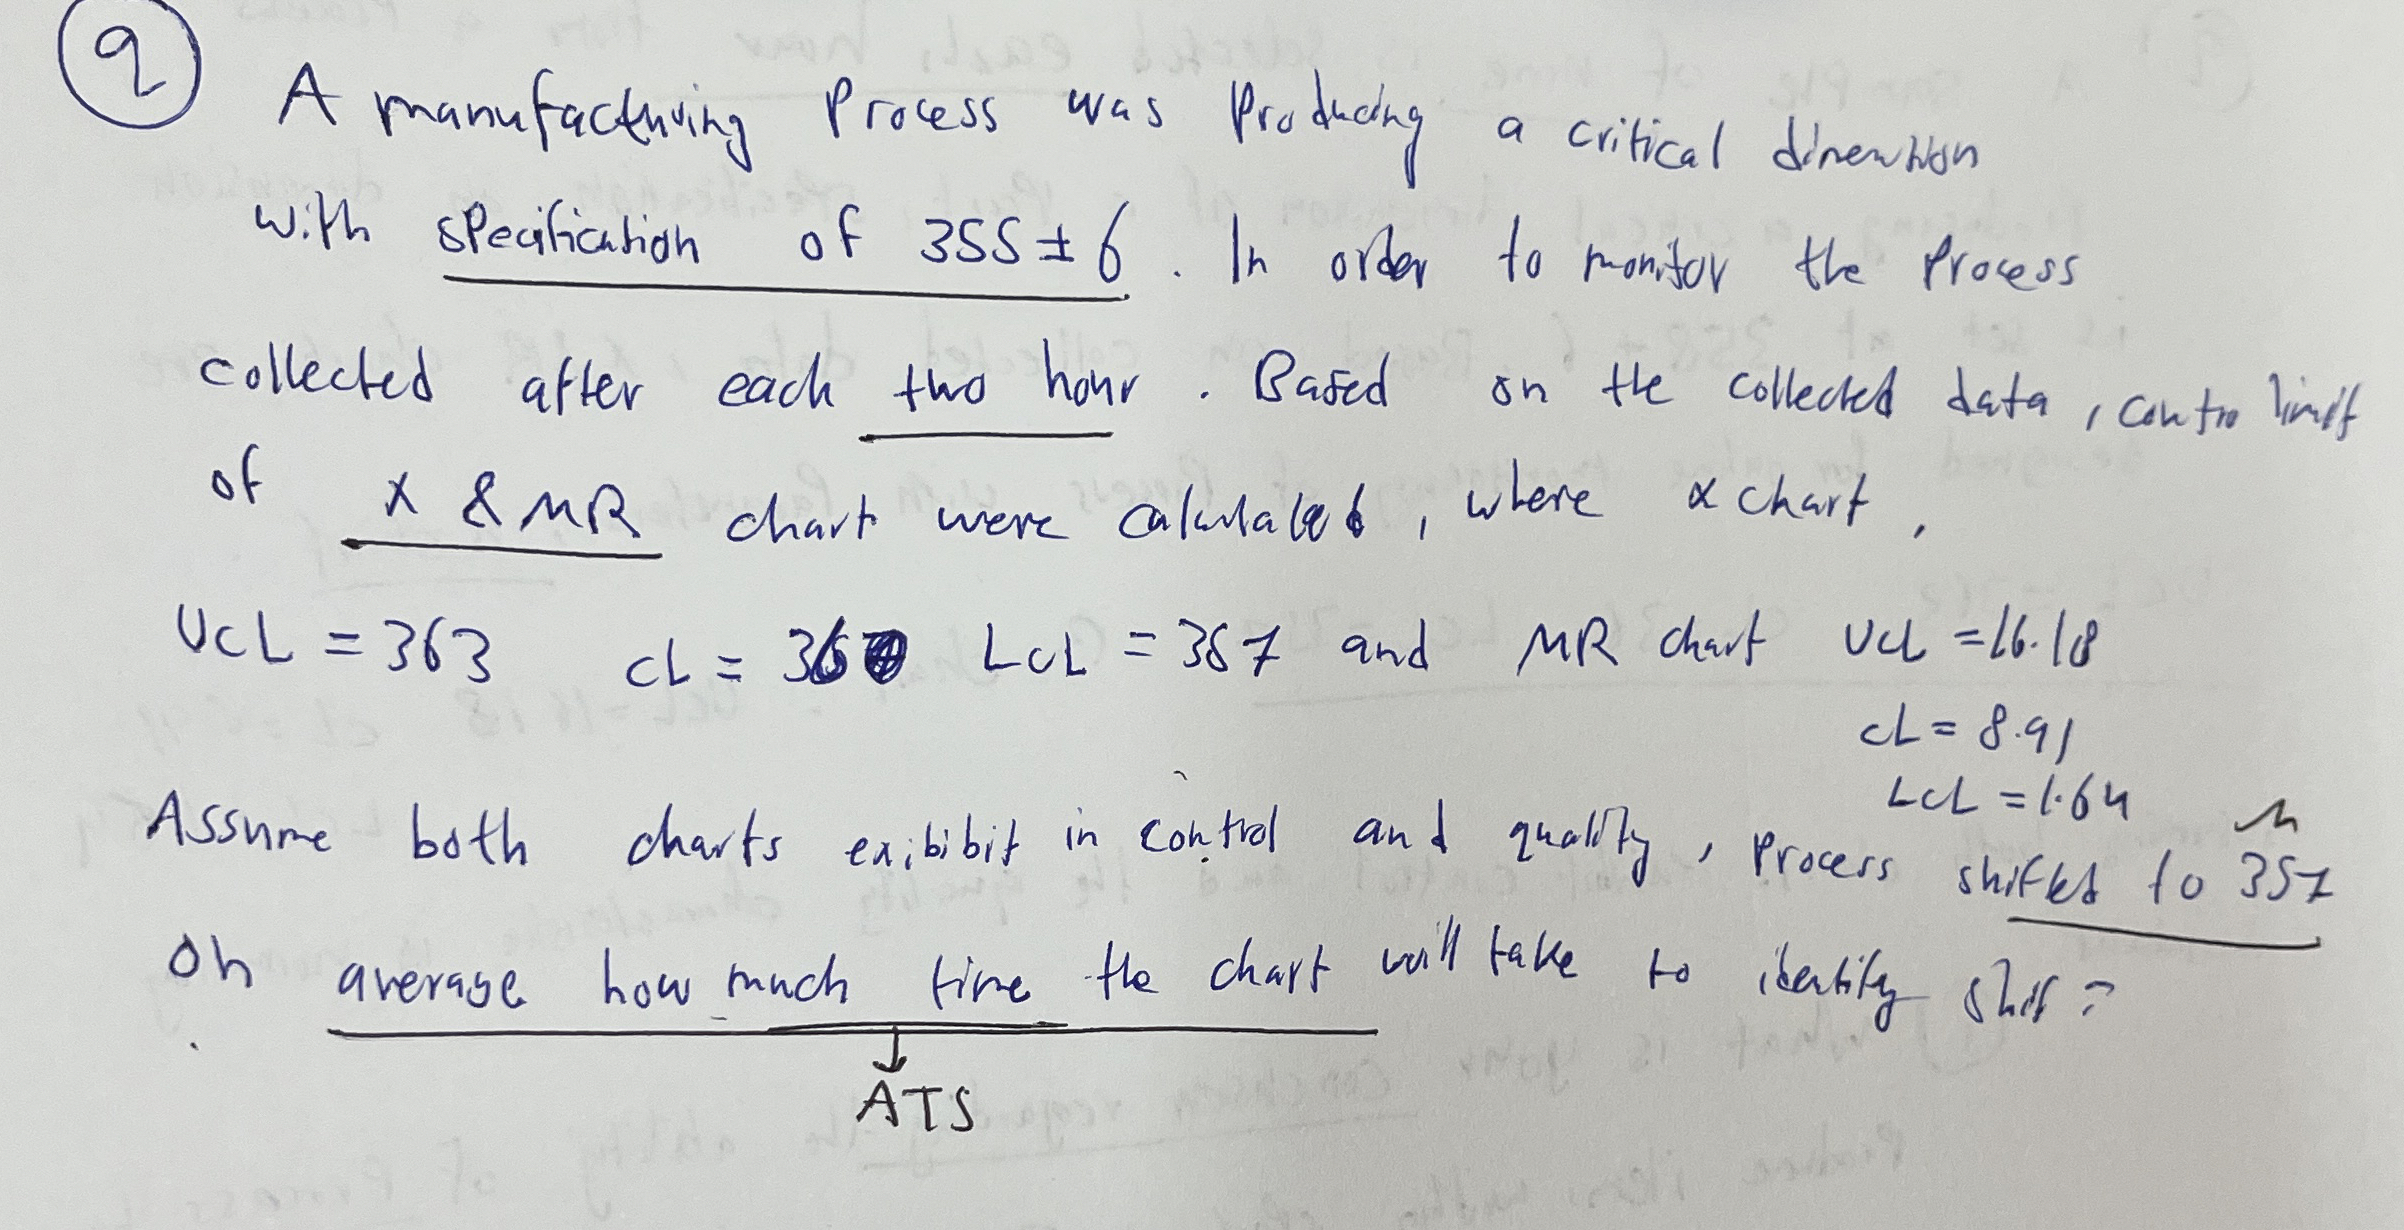 9
A manufacturing Process was Producing a critical dimension
with specification of 355 ± 6 . In order to monitor the Process
collected after each two hour . Based on the collected data , contro limit
of x & MR chart were calculated , where x chart ,
UCL = 363 CL = 360 LCL = 357 and MR chart UCL = 16.18
CL = 8.91
LCL = 1.64
Assume both charts exibibit in control and quality , Process shifted to 357
on average how much time the chart will take to identify shif ?
ATS